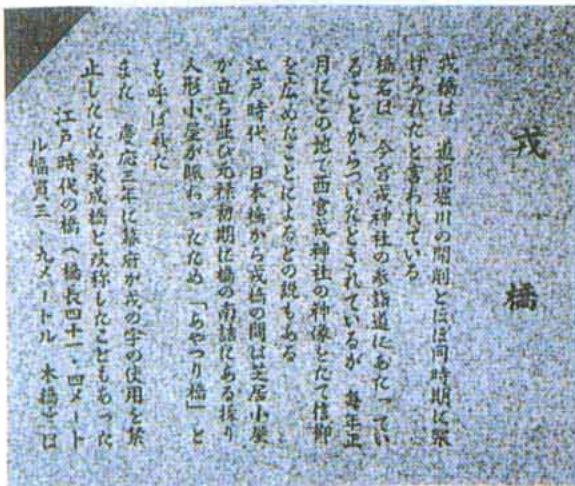 戎橋
戎橋は 道頓堀川の開削とほぼ同時期に架
けられたと言われている
橋名は 今宮戎神社の参詣道にあたってい
ることからついたとされているが 毎年正
月にこの地で西宮戎神社の神像をたて信仰
を広めたことによるとの説もある
江戸時代 日本橋から戎橋の間は芝居小屋
が立ち並び元禄初期に橋の南詰にある操り
人形小屋が賑わったため 「あやつり橋」と
も呼ばれた
また 慶応三年に幕府が戎の字の使用を禁
止したため永成橋と改称したこともあった
江戸時代の橋(橋長四十一・四メート
ル幅員三・九メートル 木橋)は